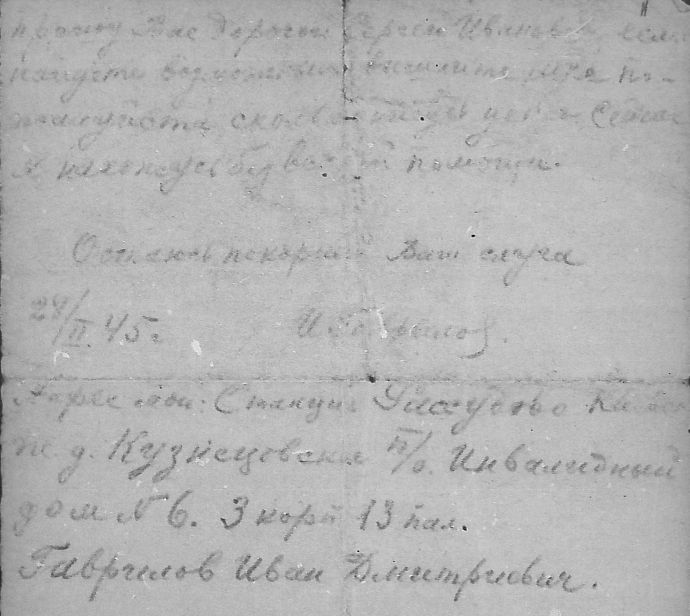 прошу Вас дорогой Сергей Иванович, если
найдете возможным вышлите мне по-
жалуйста сколько нибудь сейчас
я нахожусь без всякой помощи.
Остаюсь покорный Ваш слуга
28/II.45г И Гаврилов.
Адрес мой: Станция
ж.д. Кузнецовская п/о. Инвалидный
дом № 6. 3 корп 13 пал.
Гаврилов Иван Дмитриевич.